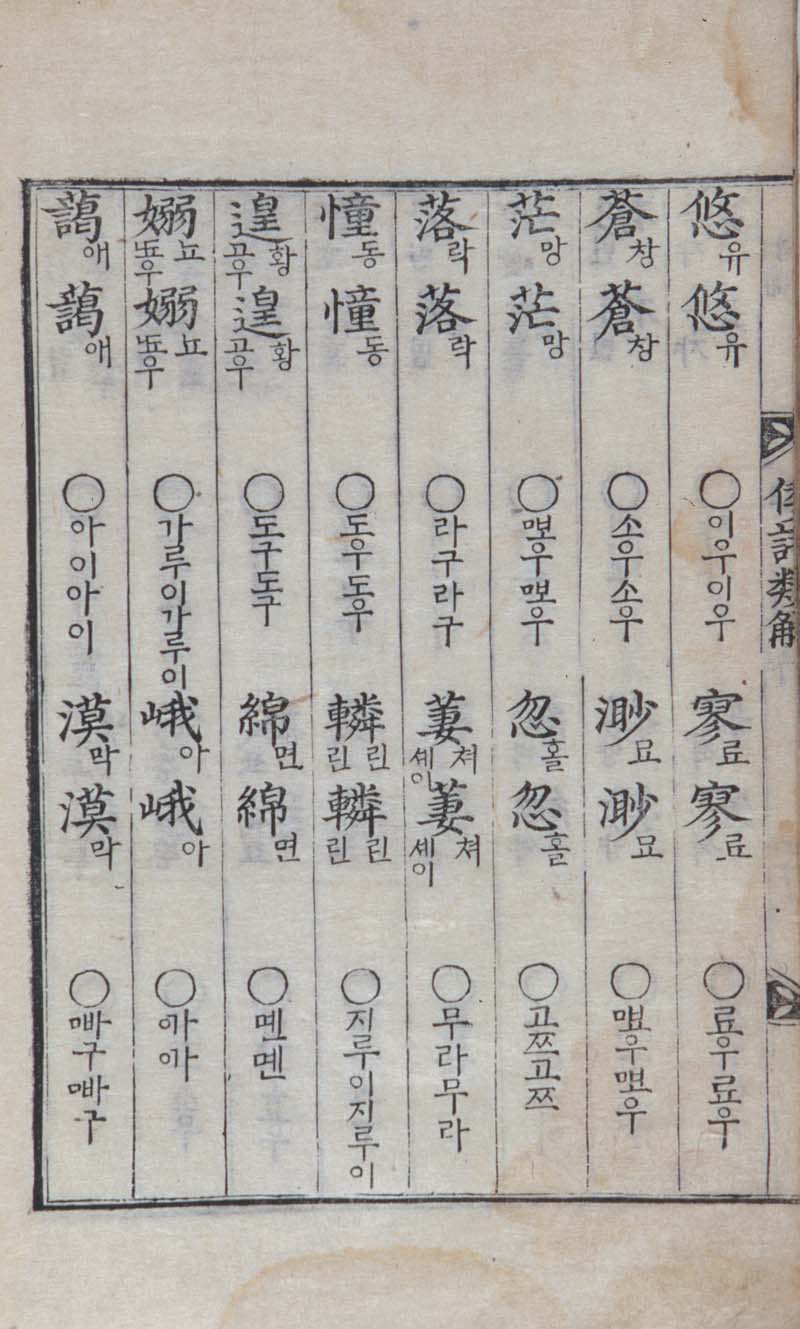 倭語類解
悠유悠유 ○이우이우 寥료寥료 ○료우료우
蒼창蒼창 ○소우소우 渺묘渺묘 ○ᄜᅭ우ᄜᅭ우
茫망茫망 ○ᄜᅩ우ᄜᅩ우 忽홀忽홀 ○고쯔고쯔
落락落락 ○라구라구 萋쳐셰이萋쳐셰이 ○무라무라
憧동憧동 ○도우도우 轔린린轔린린 ○지루이지루이
遑황고우遑황고우 ○도구도구 綿면綿면 ○몐몐
嫋뇨ᄕᅭ우嫋뇨ᄕᅭ우 ○가루이가루이 峨아峨아 ○ᅁᅡᅁᅡ
藹애藹애 ○아이아이 漠막漠막 ○ᄜᅡ구ᄜᅡ구